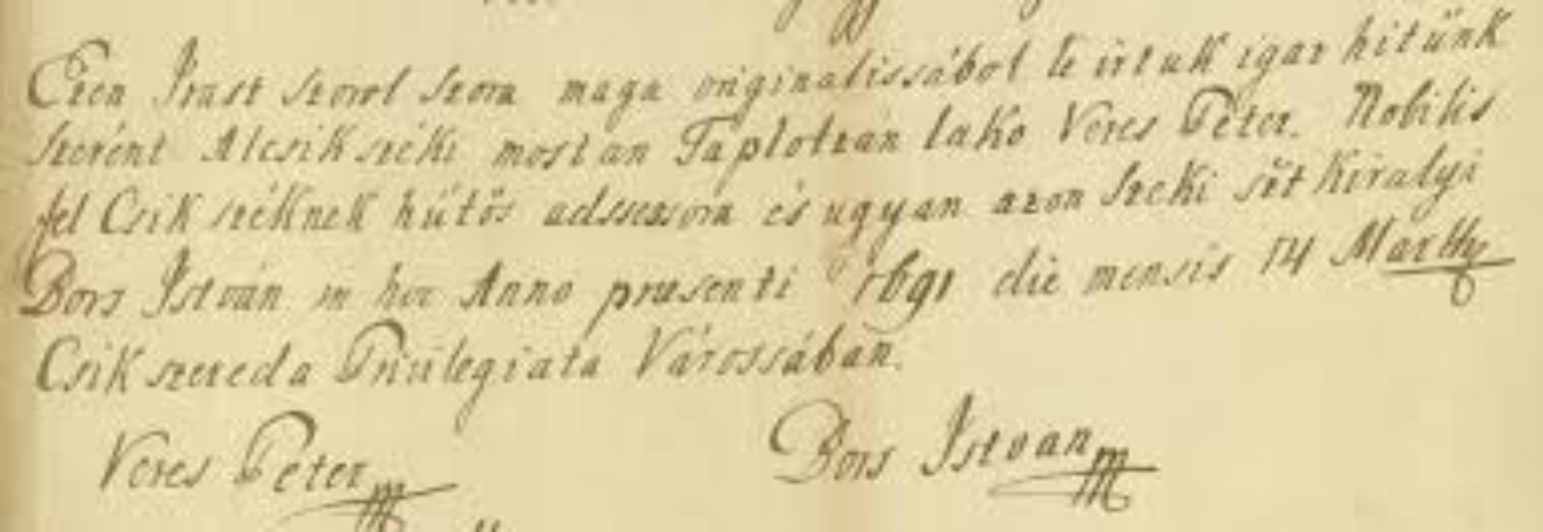 Ezen Irast szorol szora maga originalissából le irtuk igaz hitünk
szerént Alcsik széki mostan Taplotzan lako Veres Péter. Nobilis
fel Csik széknek hütös adssessora és ugyan azon Szeki Királyi
Bors István in hoc Anno praesenti 1691 die mensis 14 Marty
Csik szereda Privilegiata Várossában.
Veres Peter Bors Istvan